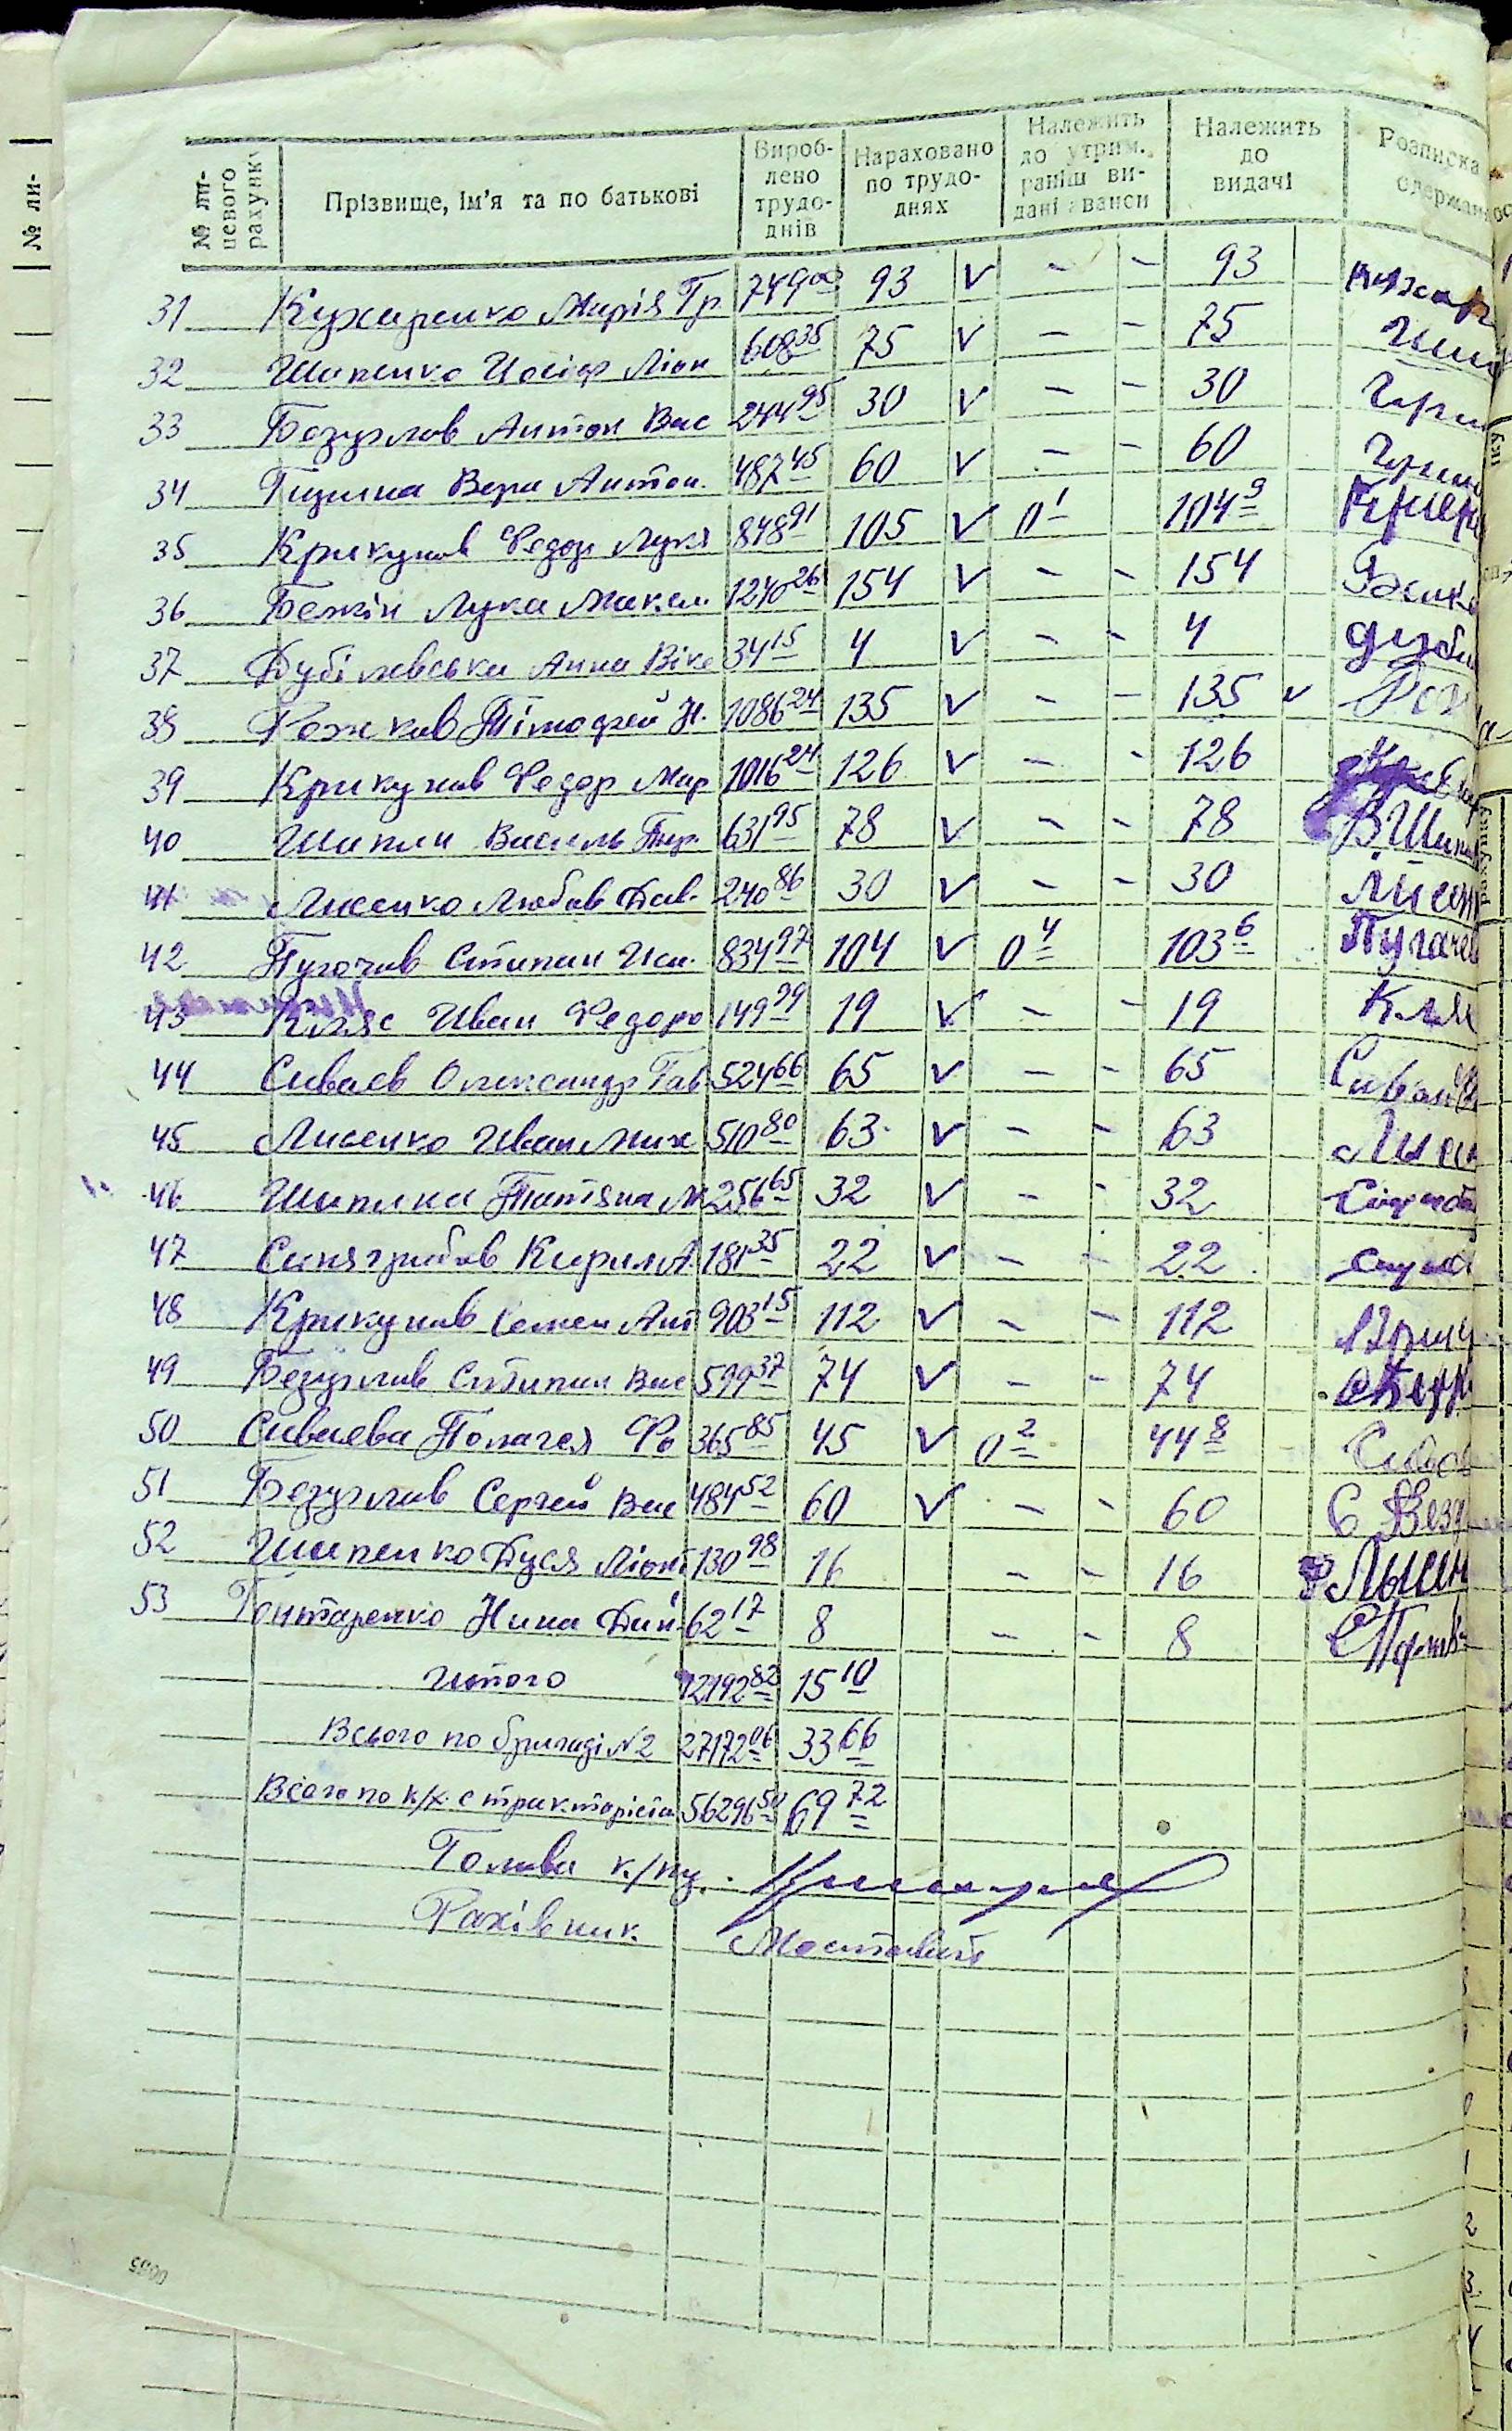 № ли-
№ ли-
цевого
рахунк
Прізвище, ім'я та по батькові
Вироб-
лено
трудо-
днів
Нараховано
по трудо-
днях
Належить
до утрим.
раніш ви-
дані аванси
Належить
до
видачі
Розписка
одержан
31 Кухаренко Марія Гр. 749 00 93 V - - 93
32 Шипенко Иосіф Ліон 608 35 75 V - - 75
33 Безуглов Антон Вас 244 95 30 V - - 30
34 Вера Антон. 487 45 60 V - - 60
35 Крикунов Федор Лук 848 91 105 V 0 1 104 9
36 Бежін Лука Максим. 1240 26 154 V - - 154
37 Дубілевська Анна Вік 34 15 4 V - - 4
38 Рожков Тімофей Н. 1086 24 135 V - - 135 v Рож
39 Крикунов Федор Мар 1016 24 126 V - - 126
40 Шипли Василь Пет. 631 95 78 V - - 78 В Шипи
41 Лисенко Любов Дав. 240 86 30 V - - 30 Лисен
42 Пугочов Стипан Иси. 834 97 104 V 0 4 103 6 Пугачев
43 Кляс Иван Федоро 149 99 19 V - - 19 Кляс
44 Сиваєв Олександр Гав 524 66 65 V - - 65 Сиваев
45 Лисенко Иван Мих 510 80 63 V - - 63 Лисен
46 Татяна М 256 65 32 V - - 32
47 Синягрибов Кирил А. 181 35 22 V - - 22
48 Крикунов Семен Ант 903 15 112 V - - 112
49 Безуглов Стипан Вас 599 37 74 V - - 74
50 Сиваева Полагея Фо 365 85 45 V 0 2 44 8 Сивае
51 Безуглов Сергей Вас 484 52 60 V - - 60 С Безу
52 Шипенко Дуся Ліонт 130 98 16 - - 16 Лысен
53 Гонтаренко Нина Дан 62 17 8 - - 8
Итого 12192 82 15 10
Всього по бригаді N2 27172 06 33 66
Всього по к/х с трактористи 56296 50 69 72
Голова к/пу.
Рахівник Мостовий
0095